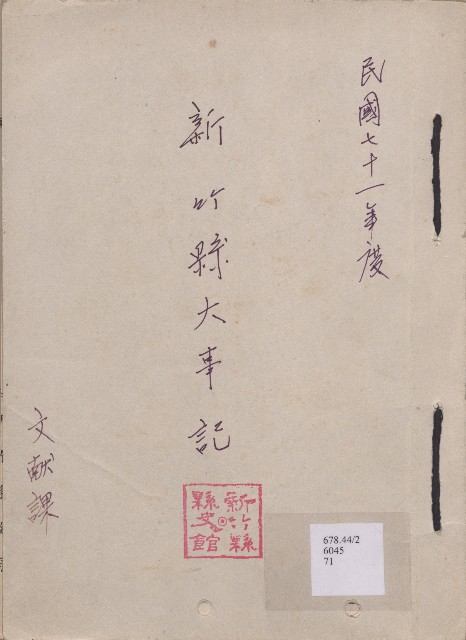 民國七十一年度
新竹縣大事記
文献課
新竹縣
縣史館
678.44/2
6045
71